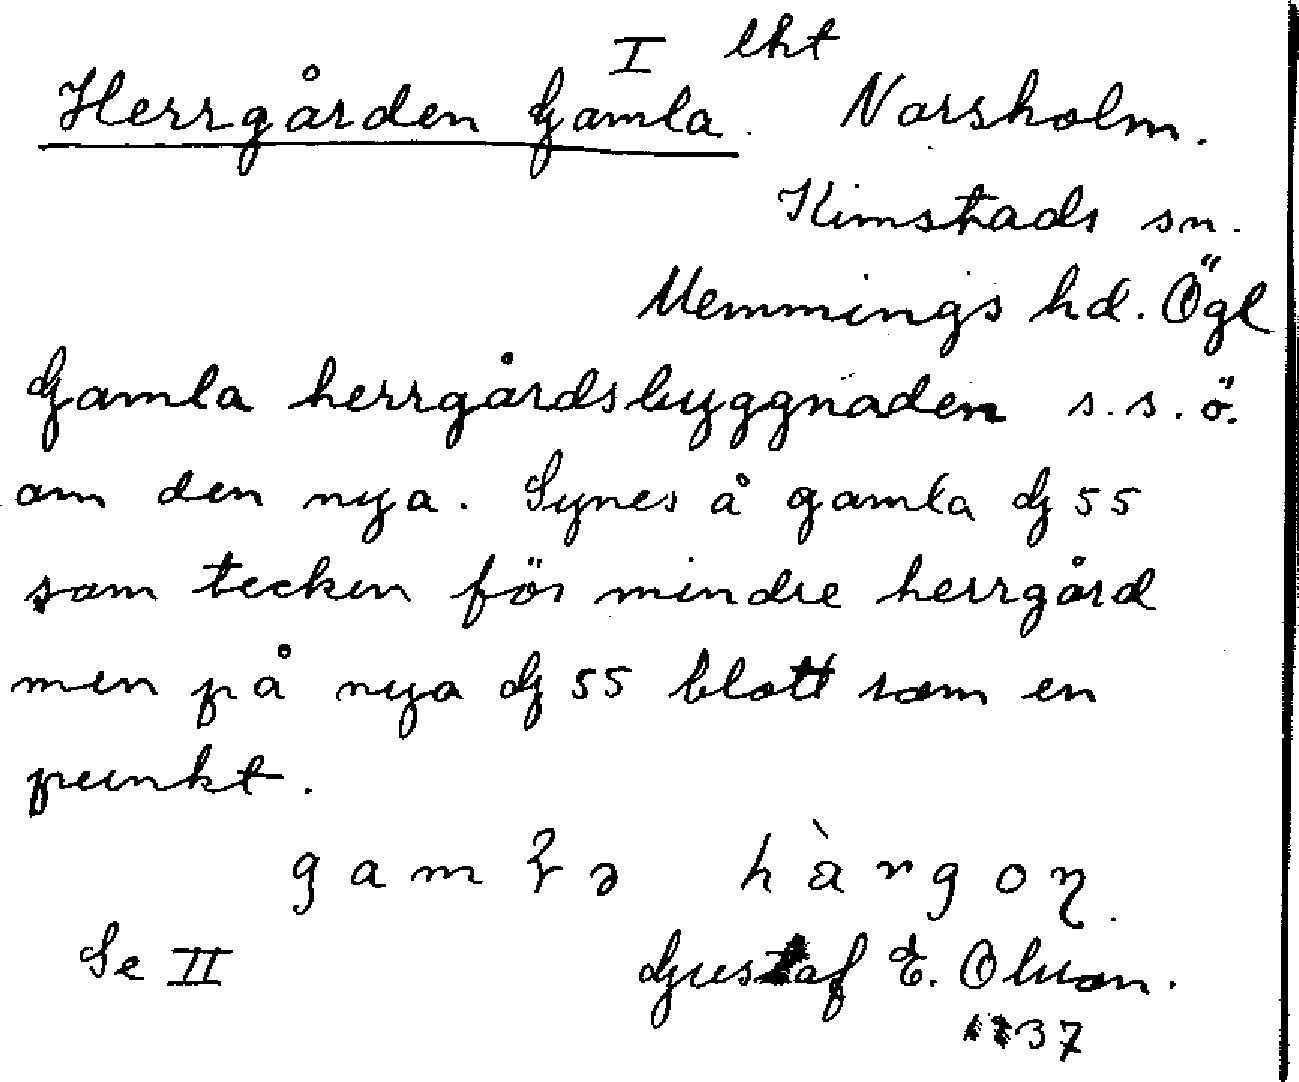 I lht
Herrgården Gamla. Norsholm.
Kimstads sn.
Memmings hd. Ögl
Gamla herrgårdsbyggnaden s.s.ö.
om den nya. Synes å gamla G 55
som tecken för mindre herrgård
men på nya G 55 blott som en
punkt.
Se II Gustaf E. Olsson.
1937